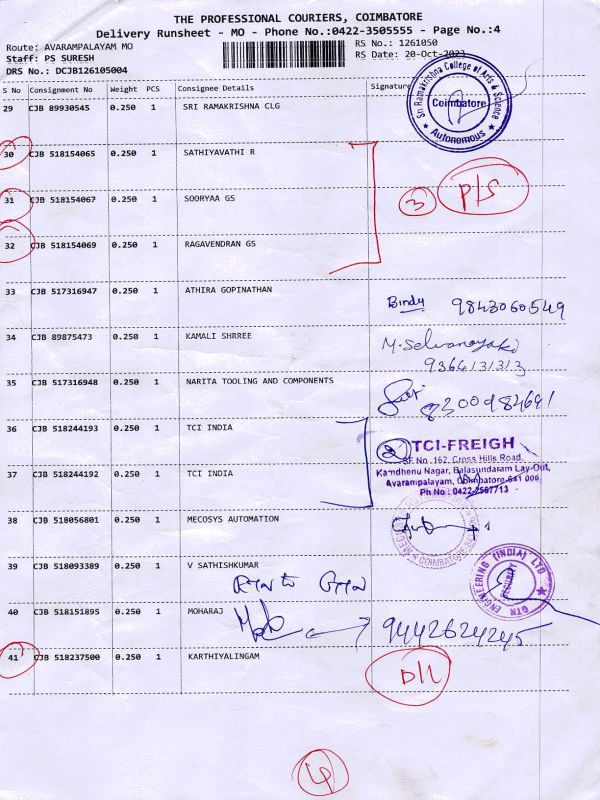 THE PROFESSIONAL COURIERS, COIMBATORE
Delivery Runsheet - MO - Phone No.:0422-3505555 - Page No.:4
Route: AVARAMPALAYAM MO
Staff: PS SURESH
DRS No.: DCJB126105004
RS No.: 1261050
RS Date: 20-Oct-2023
S No Consignment No Weight PCS Consignee Details Signature
29 CJB 89930545 0.250 1 SRI RAMAKRISHNA CLG
Sri Ramakrishna College of Arts & Science
Coimbatore
Autonomous
30 CJB 518154065 0.250 1 SATHIYAVATHI R
31 CJB 518154067 0.250 1 SOORYAA GS
3 P/S
32 CJB 518154069 0.250 1 RAGAVENDRAN GS
33 CJB 517316947 0.250 1 ATHIRA GOPINATHAN
Bindy 9843060549
34 CJB 89875473 0.250 1 KAMALI SHRREE
M. Selvanayaki
9364131313
35 CJB 517316948 0.250 1 NARITA TOOLING AND COMPONENTS
8300984691
36 CJB 518244193 0.250 1 TCI INDIA
2 TCI-FREIGH
SF No .162, Cross Hills Road,
Kamdhenu Nagar, Balasundaram Lay-Out,
Avarampalayam, Coimbatore-641 006,
Ph No : 0422-2567713
37 CJB 518244192 0.250 1 TCI INDIA
38 CJB 518056801 0.250 1 MECOSYS AUTOMATION
COIMBATORE
39 CJB 518093389 0.250 1 V SATHISHKUMAR
GTN ENGINEERING (INDIA) LTD
SECURITY
40 CJB 518151895 0.250 1 MOHARAJ
9442624245
41 CJB 518237500 0.250 1 KARTHIYALINGAM
D/L
4